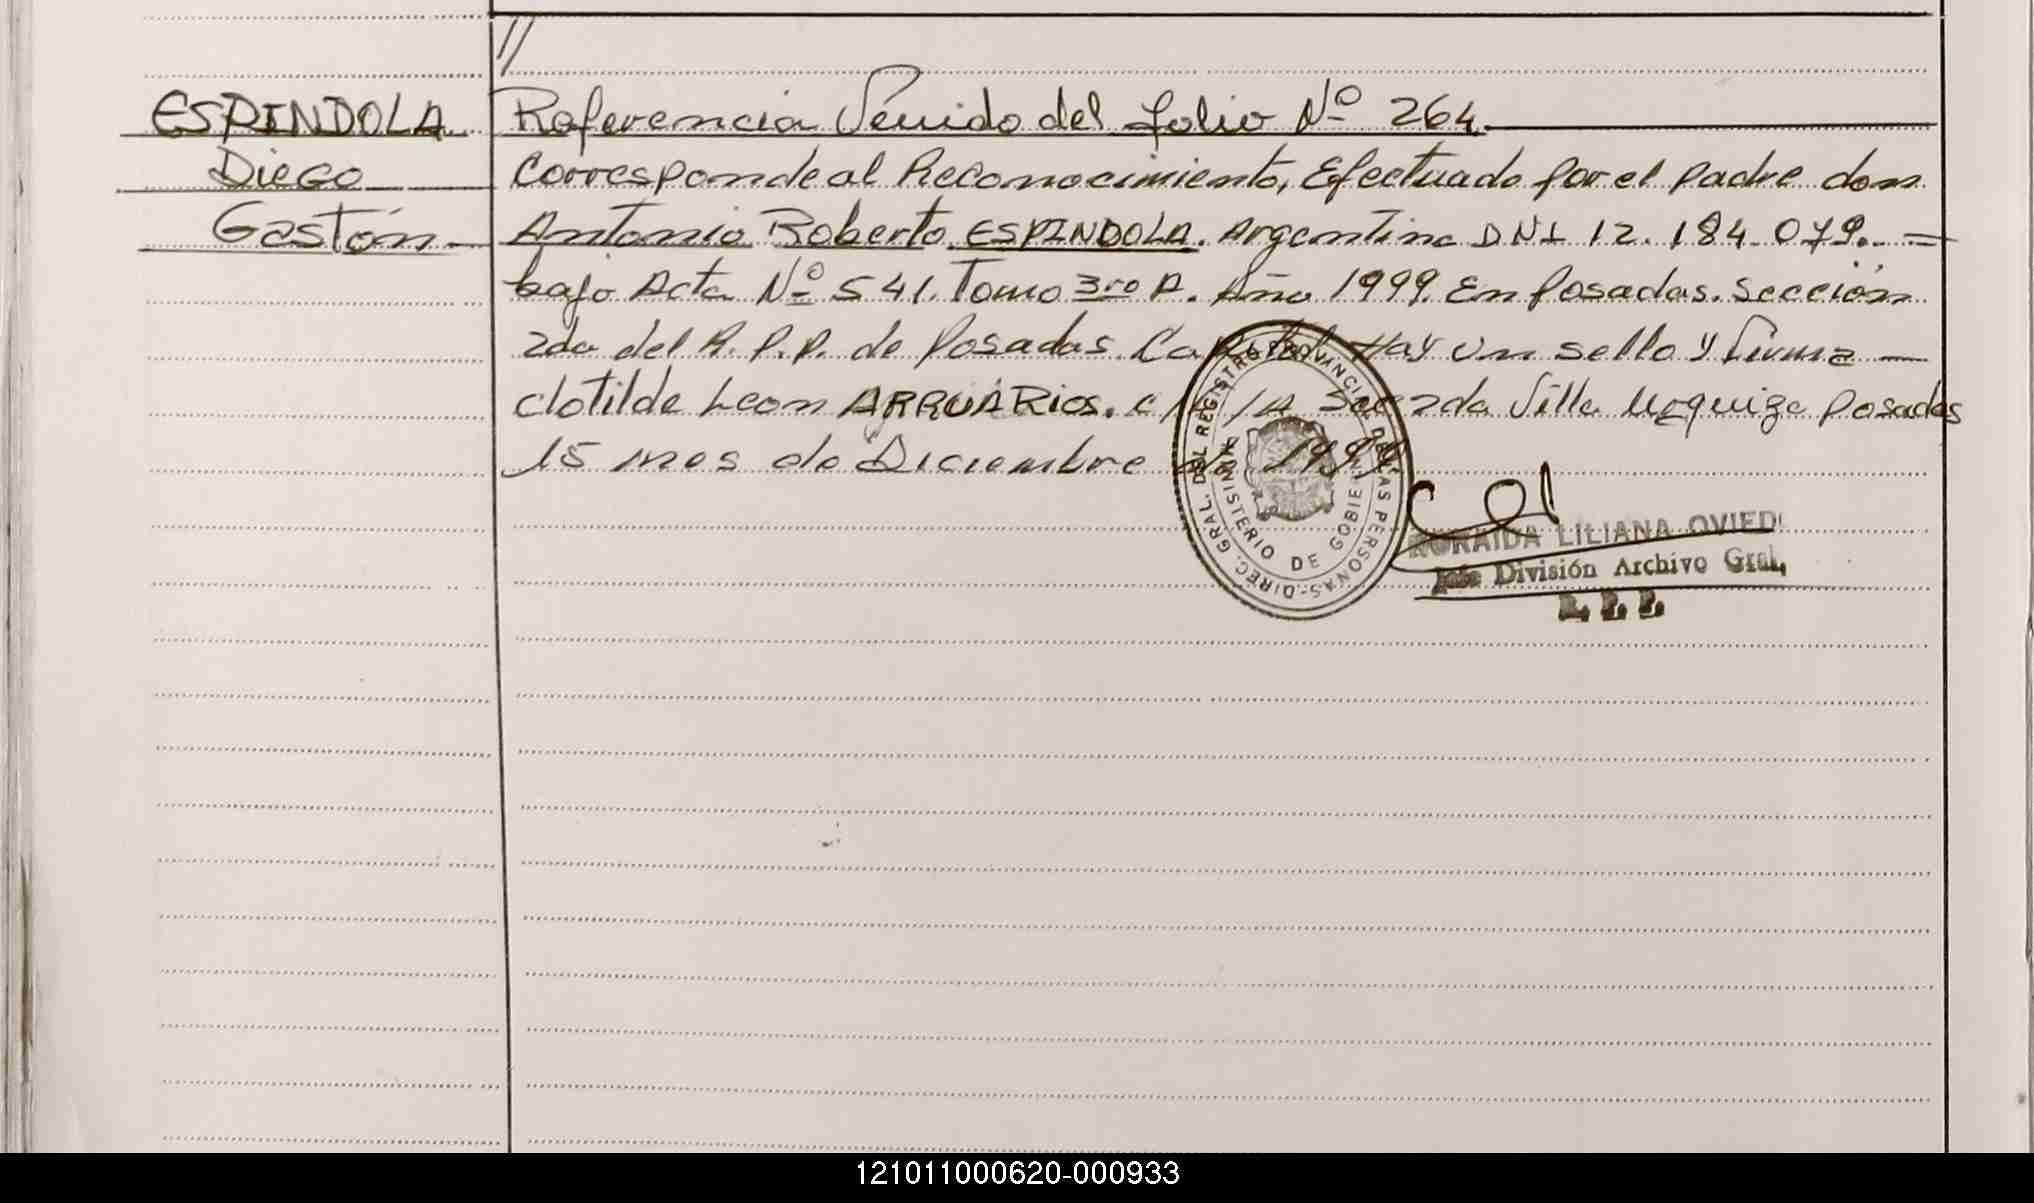 //
ESPINDOLA Referencia Venido del folio Nº 264.
Diego Corresponde al Reconocimiento, Efectuado por el padre don
Gastón Antonio Roberto ESPINDOLA. Argentino DNI 12.184.079. =
bajo Acta Nº 541. Tomo 3ro A. Año 1999. En Posadas. Sección
2da del R.P.P. de Posadas. Capital Hay un sello y firma —
Clotilde Leon Secc 2da Villa Urquiza Posadas
15 mes de Diciembre 1999
DIREC. GRAL. DEL REGISTRO PROVINCIAL DE LAS PERSONAS
MINISTERIO DE GOBIE
LILIANA OVIEDO
Jefe División Archivo Gral.
R. P. P.
121011000620-000933